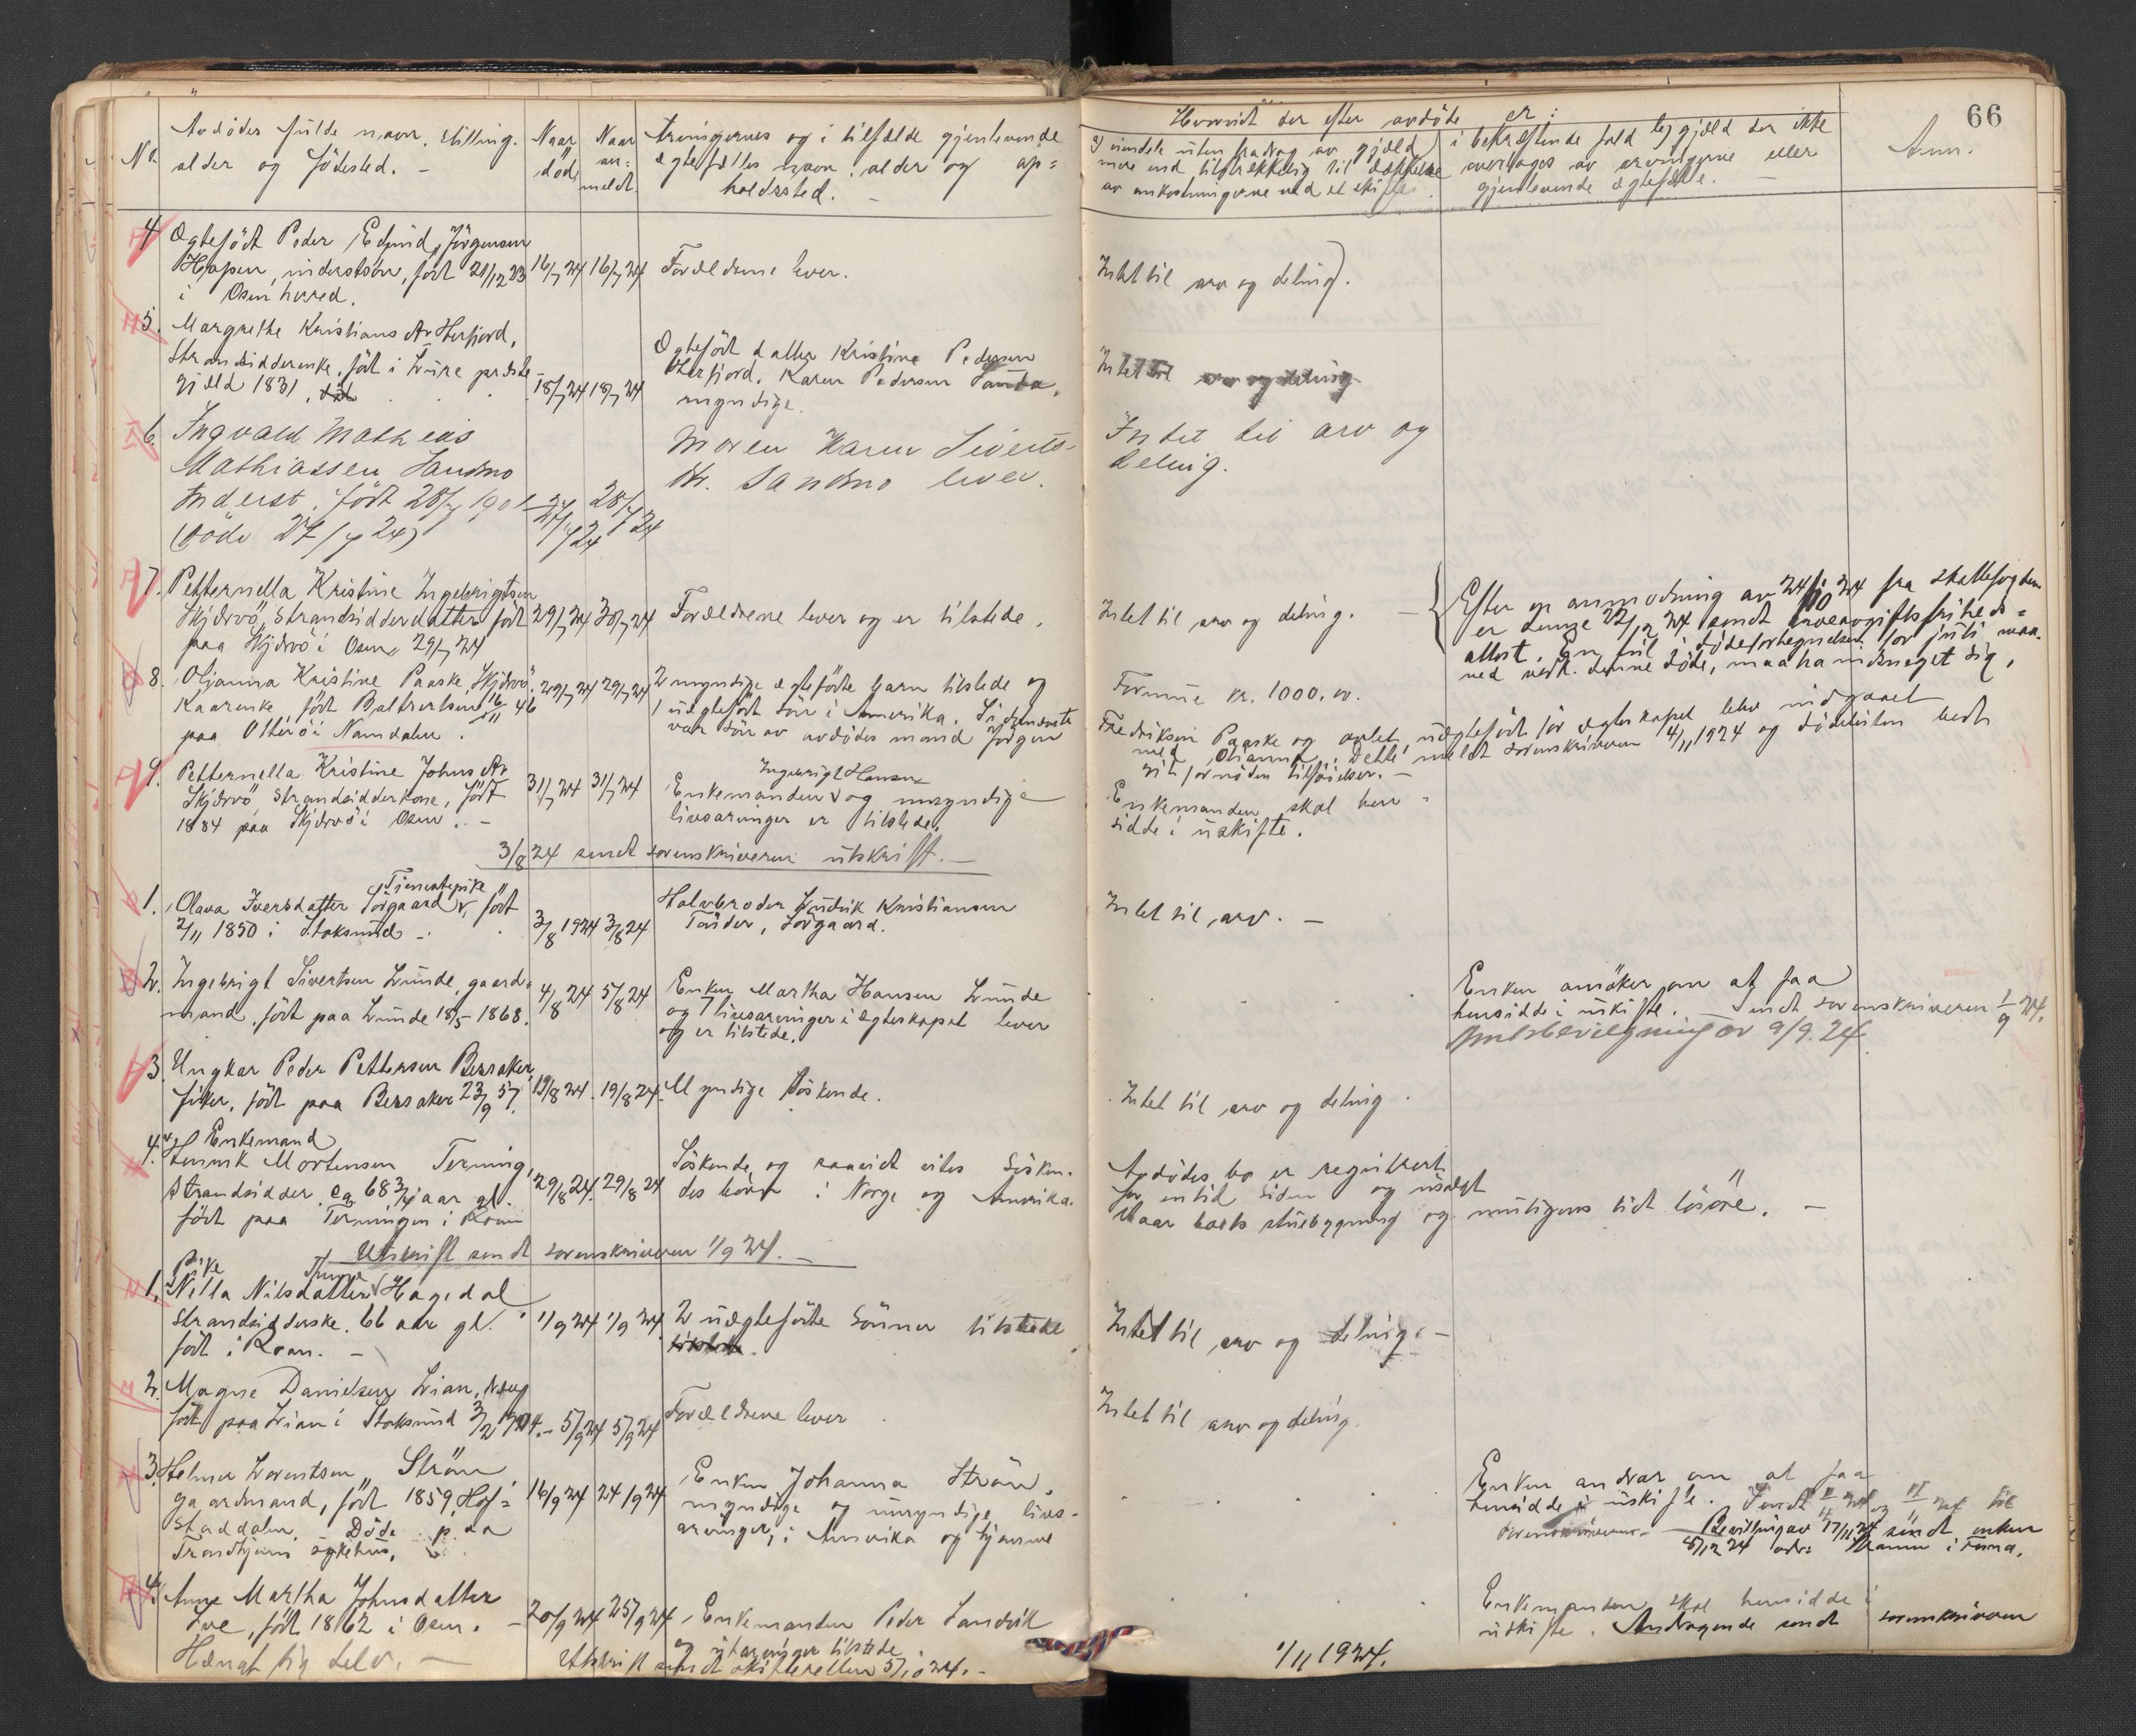 66
No.
Avdödes fulde navn, stilling,
alder og födested. -
Naar
död.
Naar
an-
meldt.
Arvingernes og i tilfælde gjenlevende
egtefælles navn, alder og op=
holdssted. -
Hvorvidt der efter avdöde er:
a) eiendele uten fradrag av gjæld
mere end tilstrækkelig til dækkelse
av omkostningerne ved et skifte.
i bekræftende fald b) gjæld der ikke
overtages av arvingerne eller
gjenlevende egtefælle. -
Anm.
4
Egtefödt Peder Edvind Jörgensen
Hopen, inderstsön, födt 21/12 23
i Osen herred.
16/7 24
16/7 24
Forældrene lever.
Intet til arv og deling.
5.
Margrethe Kristiansdtr Herfjord,
Strandsidderenke, födt i præste-
gjæld 1831,
18/7 24
18/7 24
Egtefödt datter Kristine Pedersen
Herfjord. Karen Pedersen Sanda,
myndige.
Intet til arv og deling
6.
Ingvald Mathias
Mathiassen Sandmo
Inderst, födt 28/7 1901
(döde 27/7 24)
27/7 24
28/7 24
Moren Karen Siverts-
dtr. Sandmo lever.
Intet til arv og
deling.
7.
Petternella Kristine Ingebrigtsen
Skjervö, Strandsidderdatter födt
paa Skjervö i Osen 29/7 24
29/7 24
30/7 24
Forældrene lever og er tilstede.
Intet til arv og deling. -
Efter en anmodning av 24/10 24 fra skattefogden
er denne 22/12 24 sendt arveavgiftsfriheds=
attest. En feil i dödsfortegnelsen for juli maa.
ved vedk. denne döde, maa ha indsneget sig.
8.
Oljanna Kristine Paaske, Skjervö
Kaarenke, födt Baltsersen 16/11 46
paa Otterö i Namdalen.
29/7 24
29/7 24
2 myndige egtefödte barn tilstede og
1 uegtefödt sön i Amerika. Sidstnævnte
var sön av avdödes mand Jörgen
Formue kr. 1000.00.
Fredriksen Paaske og avlet uegtefödt för egteskapet blev indgaaet
med Oljanna. Dette meldt sorenskriveren 14/11 1924 og dödslisten bedt
git fornöden tilföielser. -
9.
Petternella Kristine Johnsdtr
Skjervö, Strandsidderkone, födt
1884 paa Skjervö i Osen. -
31/7 24
31/7 24
Ingebrigt Hansen
Enkemanden og umyndige
livsarvinger er tilstede.
Enkemanden skal hen-
sidde i uskifte.
3/8 24 sendt sorenskriveren utskrift. -
1.
Tjenestepike
Olava Iversdatter Sörgaard, födt
2/11 1850 i Stoksund -
3/8 1924
3/8 24
Halvbroder Kristiansen
Sörgaard.
Intet til arv. -
2.
Ingebrigt Sivertsen Lunde, gaard-
mand, födt paa Lunde 18/5 1868.
4/8 24
5/8 24
Enken Martha Hansen Lunde
og 7 livsarvinger i egteskapet lever
og er tilstede.
Enken ansöker om at faa
hensidde i uskifte. Sendt sorenskriveren 1/9 24.
Amtsbevilgning av 9/9.24
3.
Ungkar Peder Pettersen Bessaker,
fisker, födt paa Bessaker 23/9 57.
19/8 24.
19/8 24.
Myndige söskende.
Intet til arv og deling.
4.
Enkemand
Henrik Mortensen Terning,
Strandsidder, ca 68 3/4 aar gl.
födt paa Terningen i Roan
29/8 24.
29/8 24
Söskende og saavidt vites sösken-
des börn i Norge og Amerika.
Avdödes bo er registrert
for en tid siden og usolgt
staar boets stuebygning og muligens lidt lösöre. -
Utskrift sendt sorenskriveren 1/9 24. -
1.
Pike
Nilla Nilsdatter Hagedal
Strandsidderske. 66 aar gl.
födt i Roan. -
1/9 24
1/9 24
2 uegtefödte sönner tilstede
Intet til arv og deling. -
2.
Magne Danielsen Lian,
födt paa Lian i Stoksund 3/2 1924. -
5/9 24
5/9 24
Forældrene lever
Intet til arv og deling.
3.
Helmer Lorentsen Ström
gaardmand, födt 1859 Hof=
staddalen. - Döde paa
Trondhjems sykehus.
16/9 24
24/9 24
Enken Johanna Ström,
myndige og umyndige livs-
arvinger, i Amerika og hjemme
Enken andrar om at faa
hensidde i uskifte. Sendt til
sorenskriveren. - Bevilling av 17/11 24 sendt enken
5/12 24
4.
Anne Martha Johnsdatter
födt 1862 i Osen.
Hængt sig selv. -
20/9 24
25/9 24
Enkemanden Peder Sandvik
og utarvinger tilstede
Enkemanden skal hensidde i
uskifte. Andragende sendt sorenskriveren
1/11 1924.
Utskrift sendt skifteretten 5/10 24. -